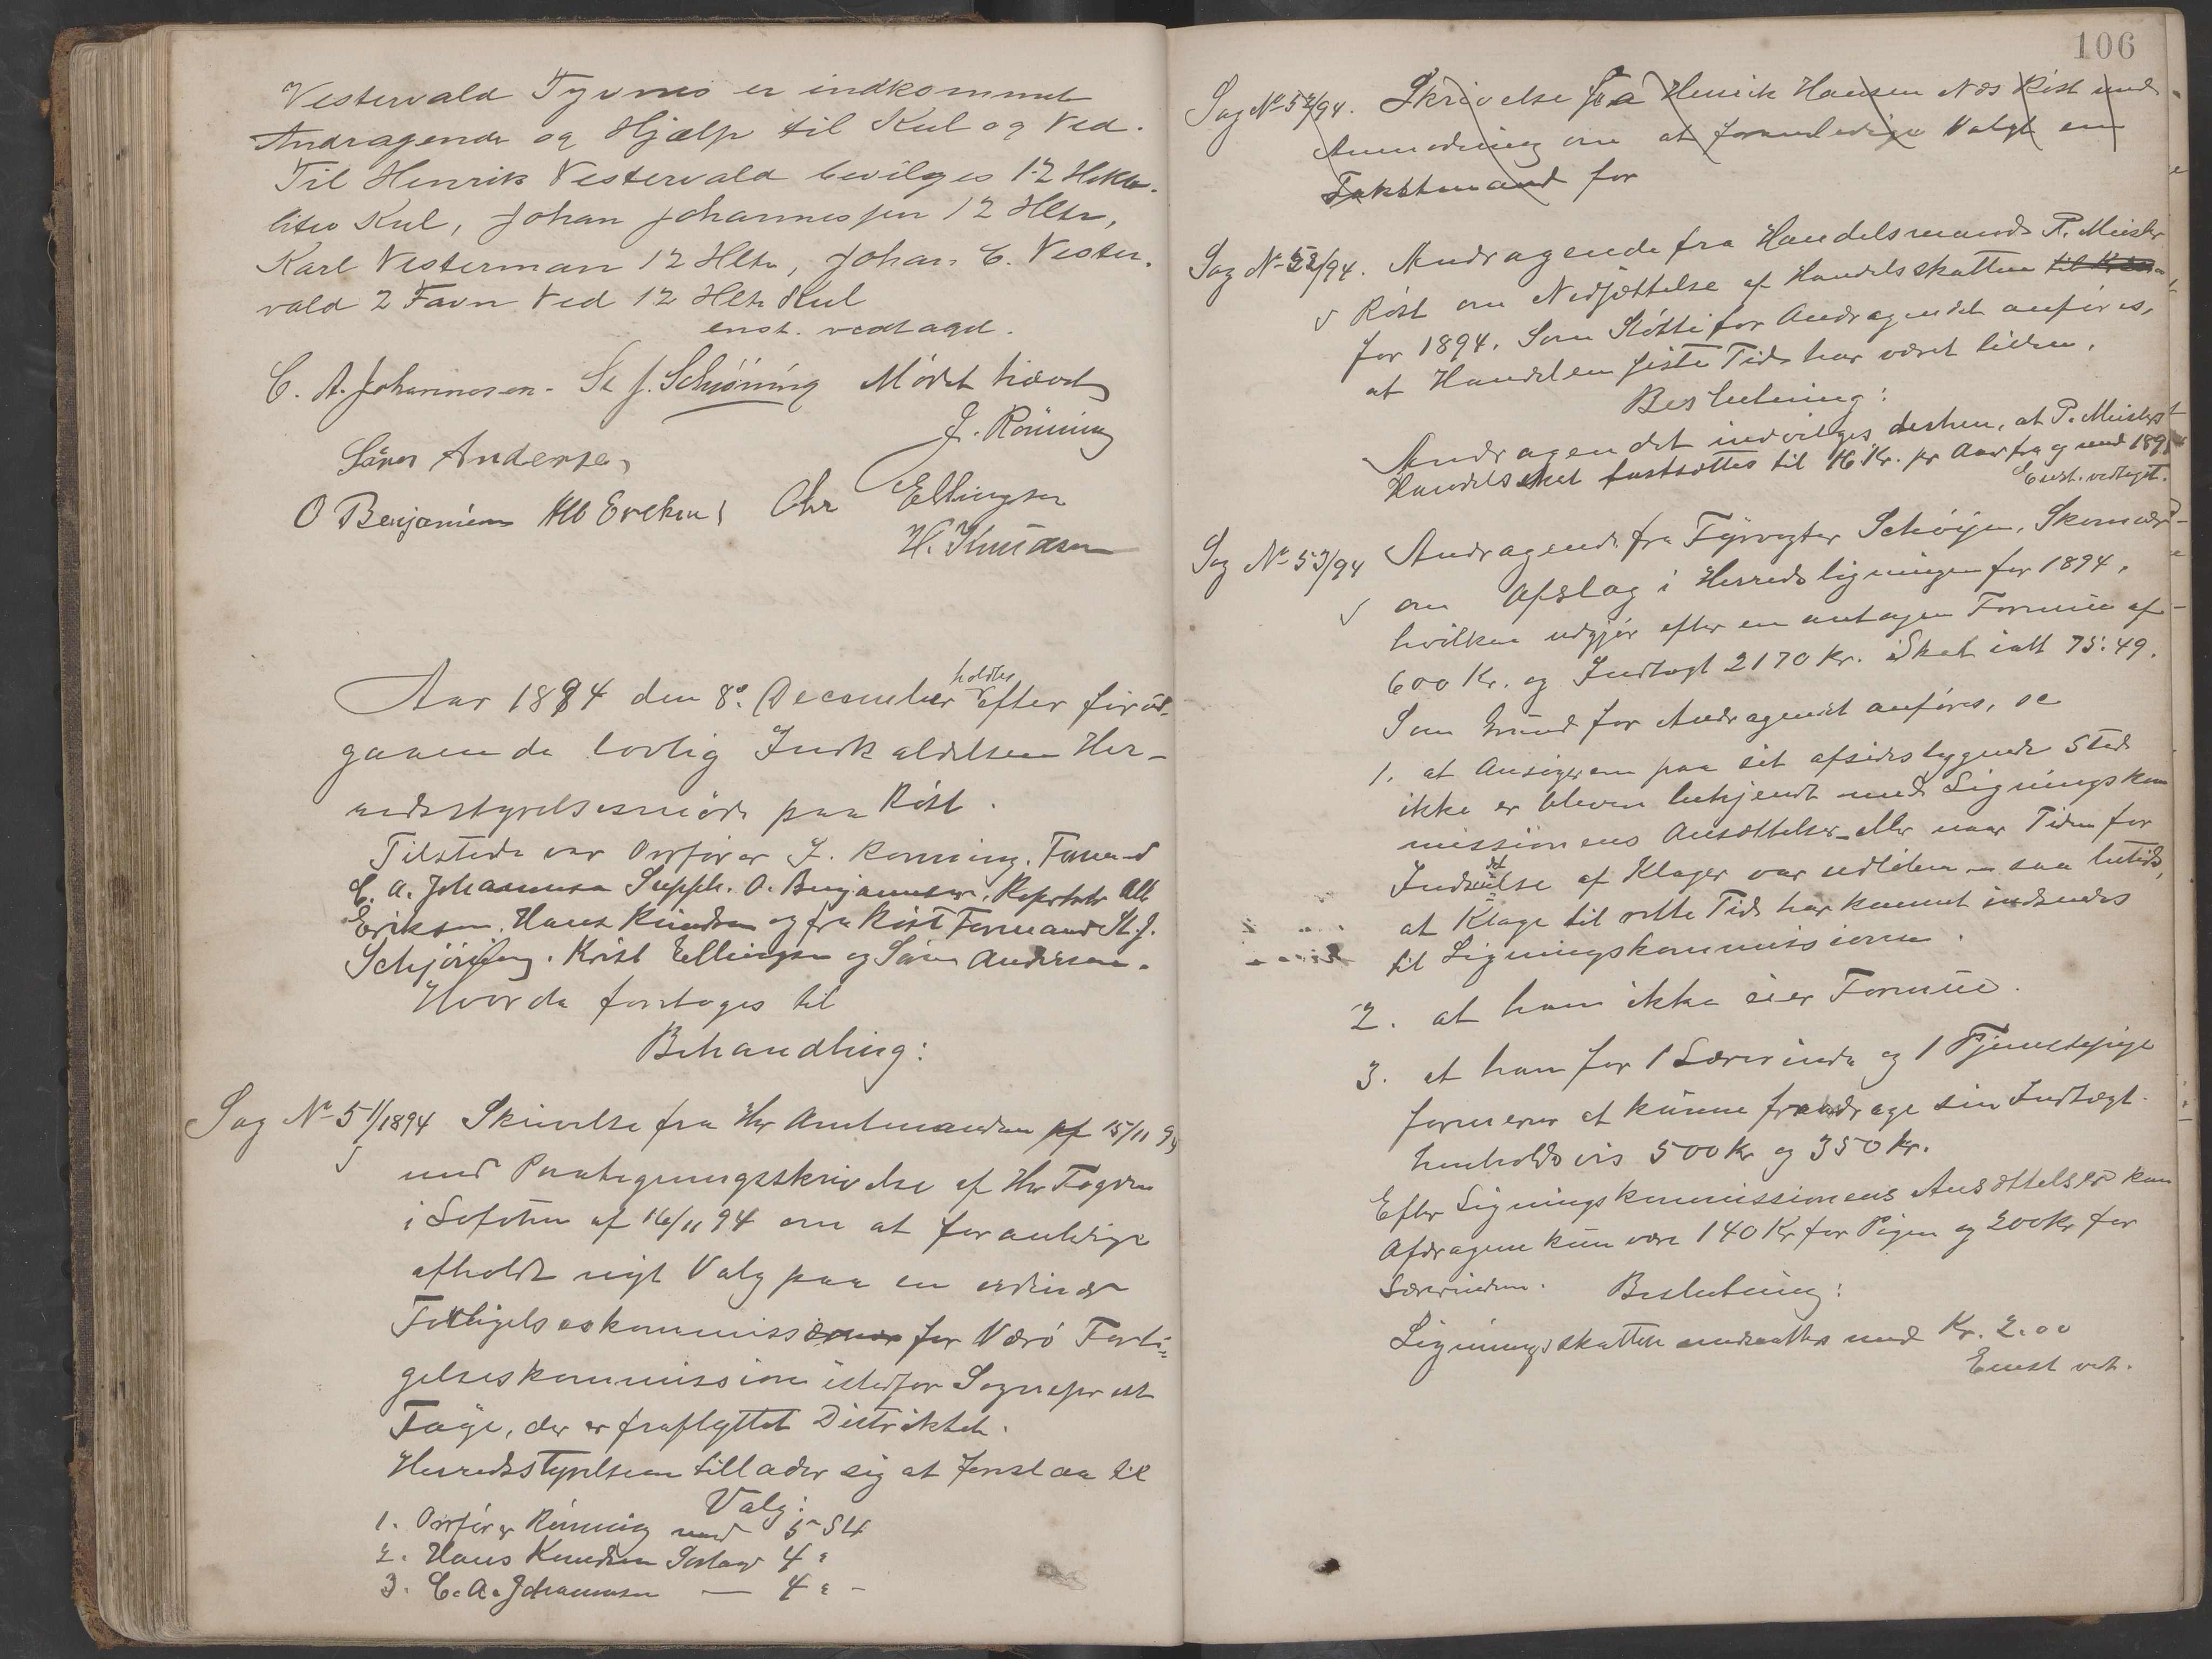 Vestervald Tyvnes er indkommet
Andragende og Hjælp til Kul og Ved.
Til Henrik Vestervald bevilges 12 Hekto-
liter Kul, Johan Johannessen 12 Hltr,
Karl Vesterman 12 Hltr, Johan C. Vester-
vald 2 Favn Ved 12 Hltr Kul
enst. vedtaget.
C. A. Johannesen - St J. Schjöning Mödet hævet
J. Rönning
Sören Andersen
O Benjaminsen Alb Eriksen Chr Ellingsen
H. Knudsen
Aar 1894 den 8de December holdtes Efter forud-
gaaende lovlig Indkaldelsen Her-
redsstyrelsesmöde paa Röst.
Tilstede var Ordförer J. Rönning. Formand
C. A. Johannesen Suppl. O. Benjaminsen, Reprstr Alb
Eriksen, Hans Knudsen og fra Röst Formand St. J.
Schjöning. Krist Ellingsen og Sören Andersen.
Hvor da foretoges til
Behandling:
Sag No 51/1894 Skrivelse fra Hr Amtmanden af 15/11 94
med Paategningsskrivelse af Hr Fogden
i Lofoten af 16/11 94 om at foranledige
afholdt nyt Valg paa en
Forligelseskommissær for Værö Forli-
gelseskommission istedfor Sogneprest
Faye, der er fraflyttet Distriktet.
Herredsstyrelsen tillader sig at foreslaa til
Valg:
1. Ordförer Rönning med 5 St
2. Hans Knudsen Sörland 4 "
3. C. A. Johannesen — 4 " -
106
Sag No 52/94. Skrivelse fra Henrik Hansen Nes Röst med
Anmodning om at foranledige Valgt en
Takstmand for
Sag No 52/94. Andragende fra Handelsmand P. Meister
Röst om Nedsættelse af Handelsskatten
for 1894. Som Stötte for Andragendet anföres,
at Handelen sidste Tid har været liden.
Beslutning:
Andragendet indvilges derhen, at P. Meisters
Handelsskat fastsættes til 16 Kr. pr Aar fra og med 1894
Enst. vedtaget.
Sag No 53/94 Andragende fra Fyrvogter Schöyen, Skomvær
om Afslag i Herredsligningen for 1894,
hvilken udgjör efter en antagen Formue af
600 Kr. og Indtægt 2170 Kr. Skat ialt 75:49.
Som Grund for Andragendet anföres,
1. at Ansögeren paa sit afsidesliggende Sted
ikke er bleven bekjendt med Ligningskom
missionens Ansættelser eller naar Tiden for
Indsendelse af Klager var udleben saa betids,
at Klage til rette Tid har kunnet indsendes
til Ligningskommissionen.
2. at han ikke eier Formue.
3. at han for 1 Lærerinde og 1 Tjenestepige
formener at kunne fradrage sin Indtægt
henholdsvis 500 Kr og 350 Kr.
Efter Ligningskommissionens Ansættelser kan
Afdragene kun være 140 Kr for Pigen og 200 Kr for
Lærerinden. Beslutning:
Ligningsskatten nedsættes med Kr. 2.00
Enst vedt.